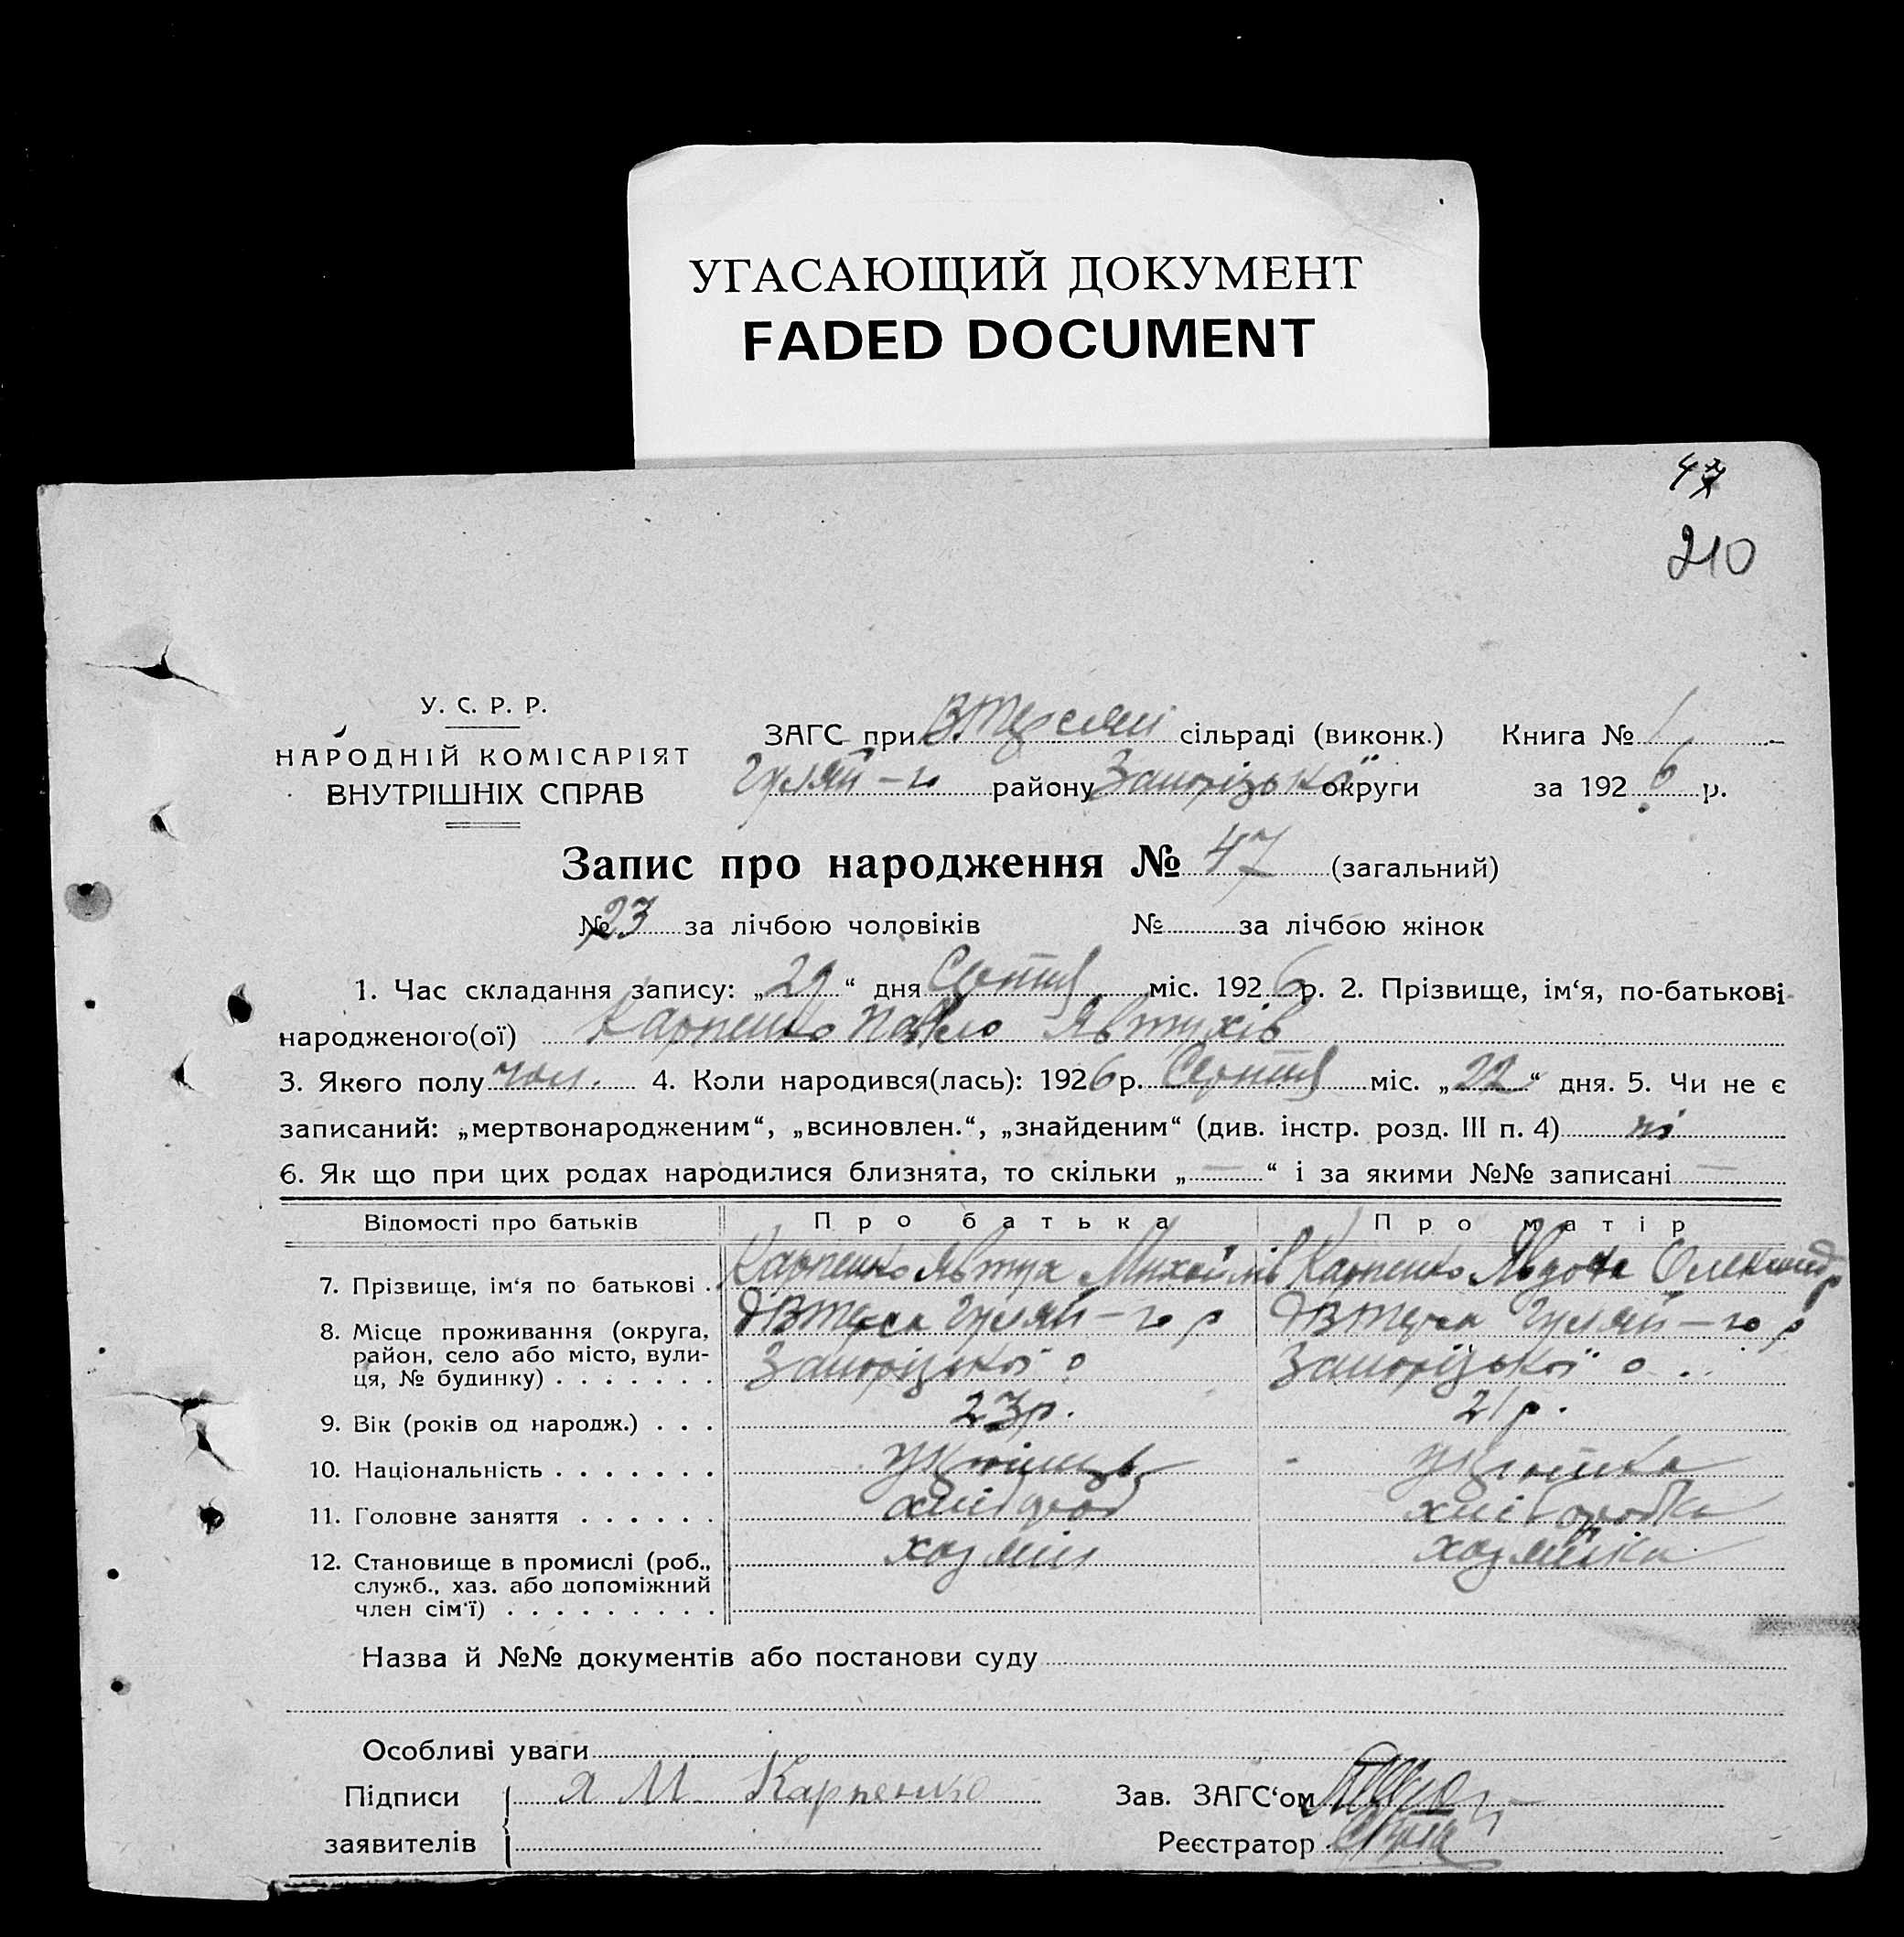 УГАСАЮЩИЙ ДОКУМЕНТ
FADED DOCUMENT
47
210
У. С. Р. Р.
НАРОДНІЙ КОМІСАРІЯТ
ВНУТРІШНІХ СПРАВ
ЗАГС при ВТерсян сільраді (виконк.) Книга № 1
Гуляй-го району Запорізької округи за 1926 р.
Запис про народження № 47 (загальний)
№ 23 за лічбою чоловіків № за лічбою жінок
1. Час складання запису: „29“ дня міс. 1926 р. 2. Прізвище, ім‘я, по-батькові
народженого(ої) Карпенко Павло Явтухів
3. Якого полу чол. 4. Коли народився(лась): 1926 р. міс. „22“ дня. 5. Чи не є
записаний: „мертвонародженим“, „всиновлен.“, „знайденим“ (див. інстр. розд. III п. 4) ні
6. Як що при цих родах народилися близнята, то скільки „—“ і за якими №№ записані —
Відомості про батьків Про батька Про матір
7. Прізвище, ім‘я по батькові . Карпенко Явтух Михайлів Карпенко Явдоха Олександр
8. Місце проживання (округа, ВТерса Гуляй-го р ВТерса Гуляй-го р
район, село або місто, вули- Запорізької о Запорізької о
ця, № будинку) . . . . . . .
9. Вік (років од народж.) . . . 23 р. 21 р.
10. Національність . . . . . . . українець українка
11. Головне заняття . . . . . . хлібороб хліборобка
12. Становище в промислі (роб., хазяїн хазяйка
служб., хаз. або допоміжний
член сім‘ї) . . . . . . . . .
Назва й №№ документів або постанови суду
Особливі уваги
Підписи Я М Карпенко Зав. ЗАГС‘ом
заявителів Реєстратор